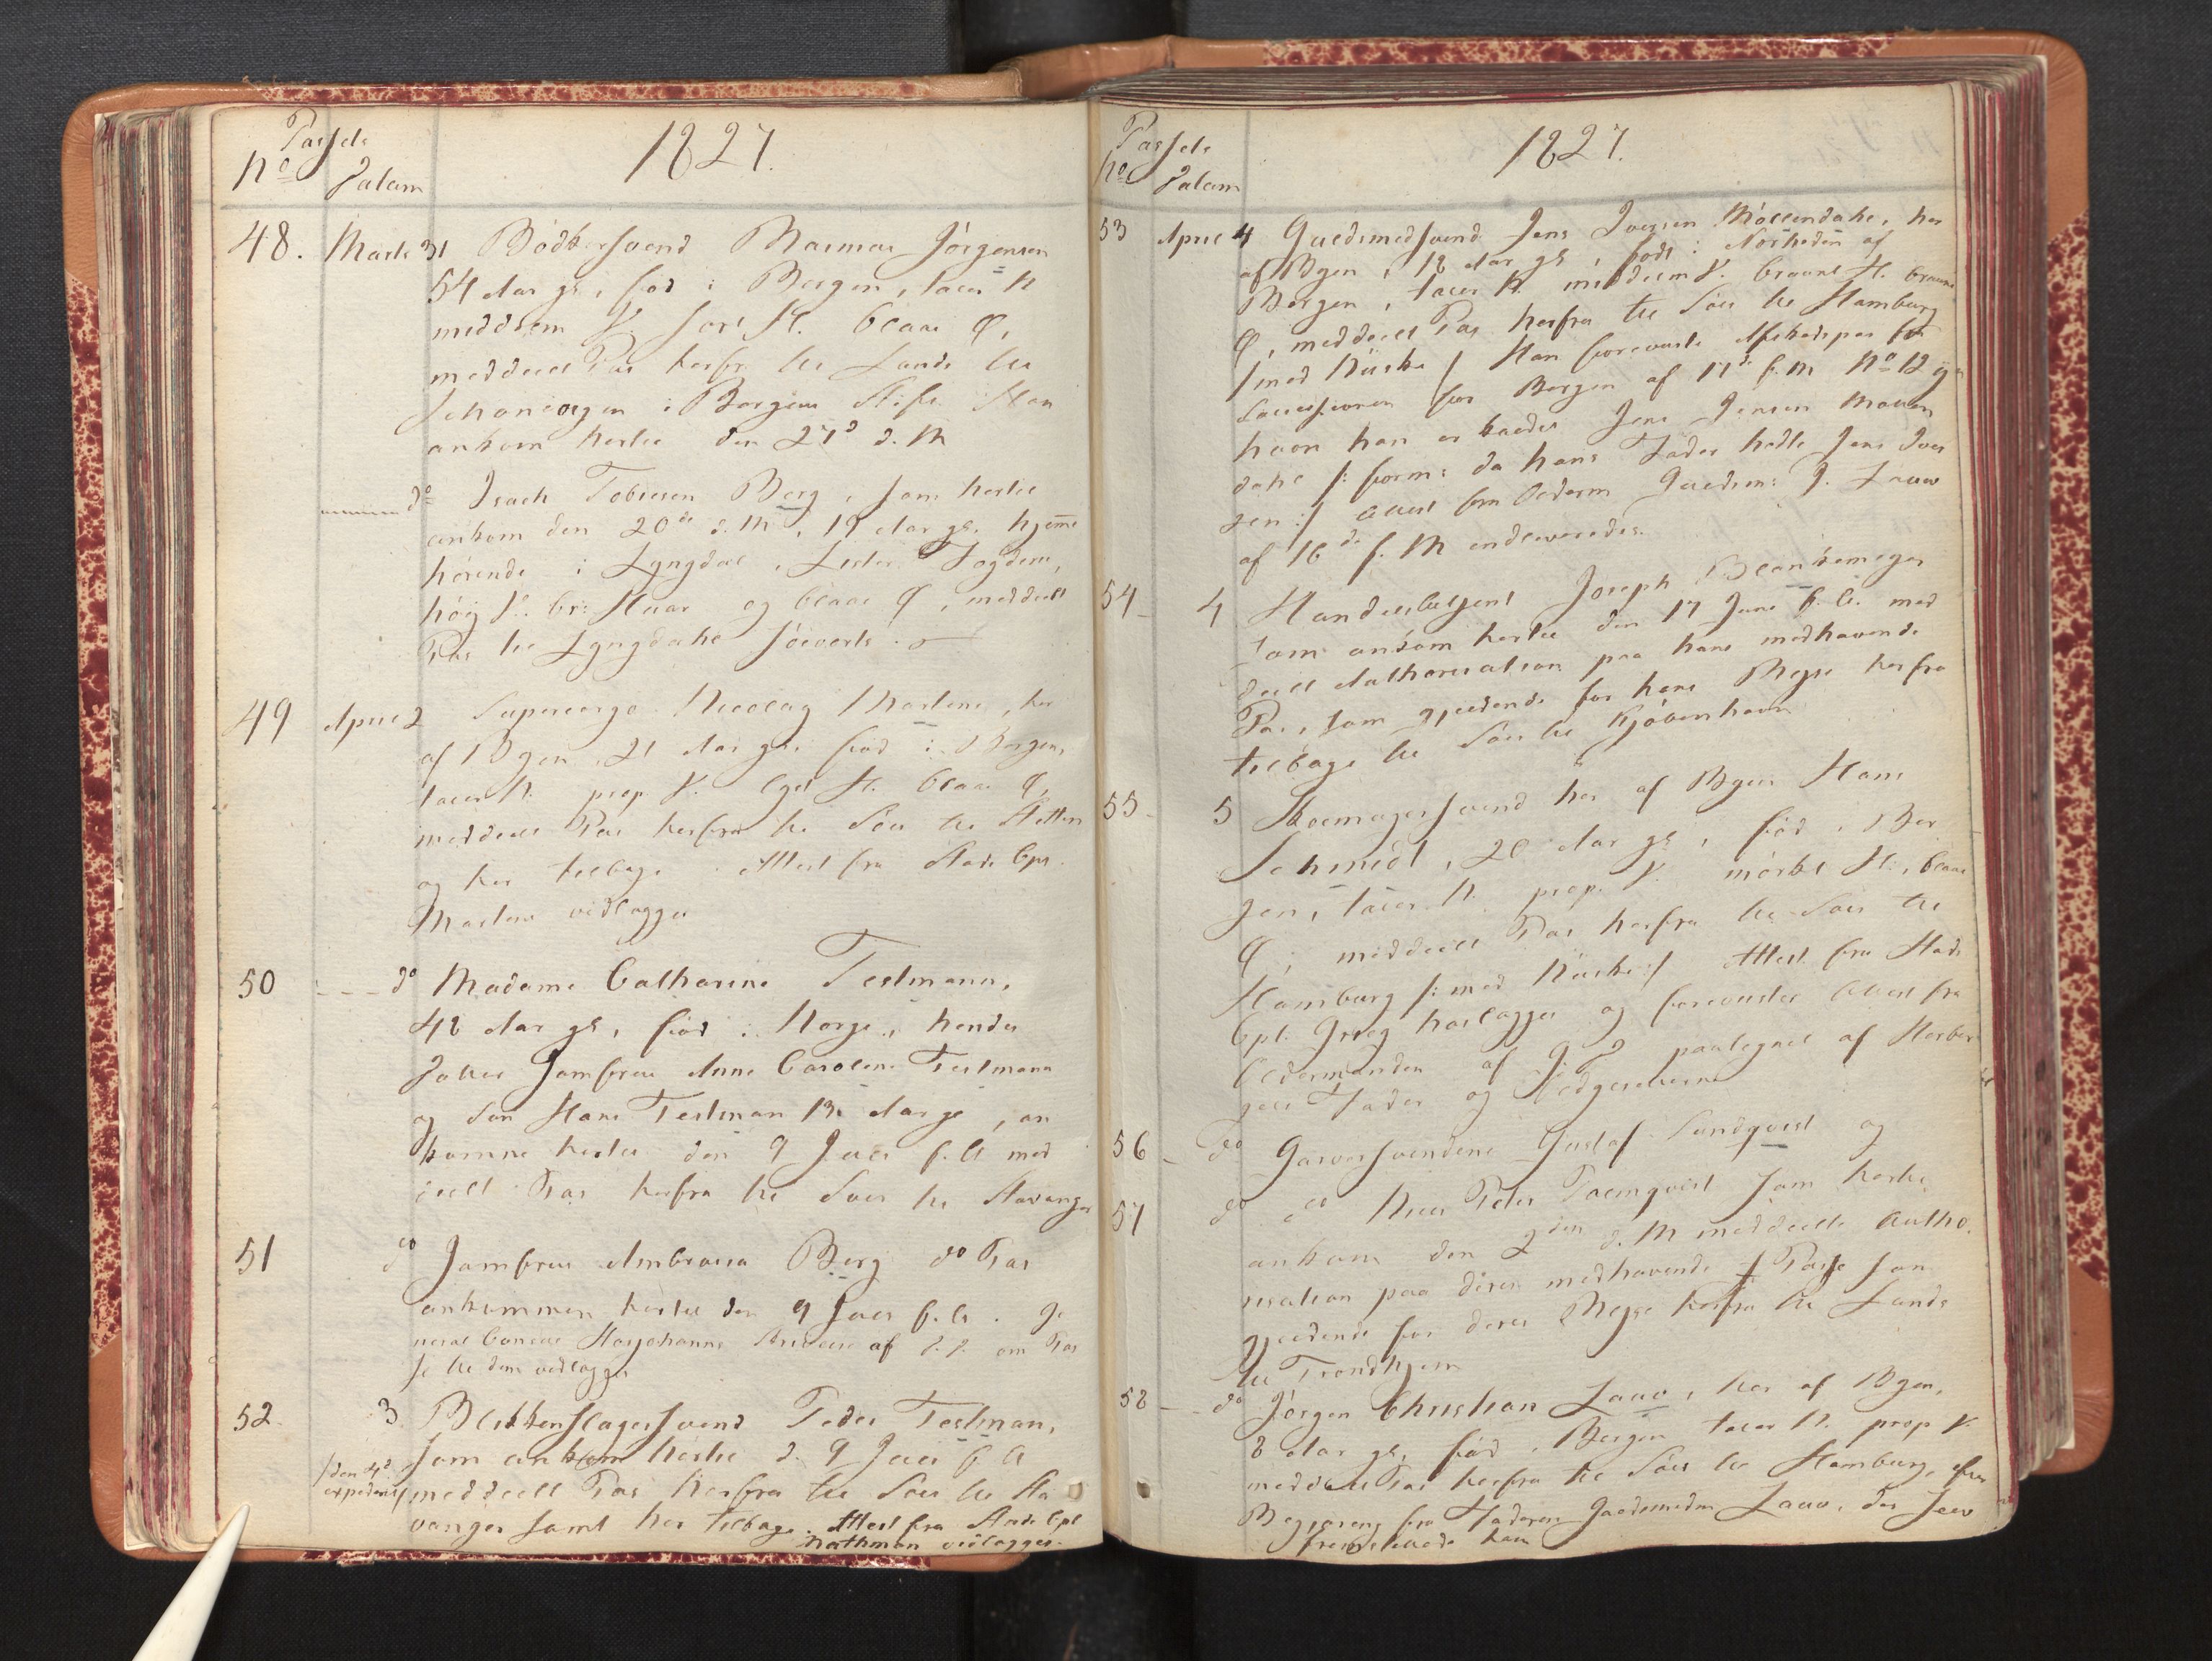 Passets
No Datum
1827.
48. Marts 31 Bödkersvend Rasmus Jörgensen
54 Aar gl, föd i Bergen, taler N
middelm V. sort H. blaae Ø,
meddeelt Pas herfra til Lands til
i Bergens Stift. Han
ankom hertil den 27d d. M
do Isach Tobiesen Berg, som hertil
ankom den 20de d. M, 19 Aar gl. hjem̅e
hörende i Lyngdal, Lister Fogderie,
höy V. br: Haar og blaae Ø, meddeelt
Pas til Lyngdahl söeverts
49 April 2 Supercargo Nicolay Martens, her
af Byen 21 Aar gl. föd i Bergen,
taler N. prop. V. lyst H. blaae Ø,
meddeelt Pas herfra til Söes til Stettin
og her tilbage. Attest fra Stads Cpt.
Martens vedlagges
50 do Madame Catharine Testmann,
48 Aar gl, föd i Norge, hendes
Datter Jomfrue Anne Carolene Testmann
og Sön Hans Testman 13 Aar gl, an
komne hertil den 9 Juli f. A med
deelt Pas herfra til Söes til Stavanger
51 do Jomfrue Ambrosia Berg do Pas
ankommen hertil den 9 Juli f. A. Ge
neral Consul af d. D. om Pas
se til dem vedlagges
52. 3 Blikkenslagersvend Peder Testman,
som ankom hertil d. 9 Juli f A
/den 4d
expederet/ meddeelt Pas herfra til Söes til Sta
vanger samt her tilbage. Attest fra Stads Cpt
Rathman vedlagges.
Passets
No Datum
1827.
53 April 4 Guldsmedsvend Jens Iversen Möllendahl, her
af Byen, 18 Aar gl, födt i Nærheden af
Bergen, taler N. middelm V. bruunt H. bruune
Ø, meddeelt Pas herfra til Söes til Hamburg
/med Kudske/ Han foreviiste Afskedspas fra
for Bergen af 17de f. M No 12
hvori han er kaldet Jens Jensen Möllen
dahl /: form: da hans Fader hedte Jens Iver
sen :/ Attest fra Olderm Guldsm: J. Lauw
af 16de f. M indleveredes.
54 4 Handelsbetjent Joseph Blankemeyer
som ankom hertil den 17 Juni f. A. med
deelt Authorisation paa hans medhavende
Pas, som gjeldende for hans Rejse herfra
tilbage til Söes til Kjöbenhavn
55 5 Skoemagersvend her af Byen Hans
Schmidt, 20 Aar gl, föd i Ber
gen, taler N. prop. V. mörkt H., blaae
Ø, meddeelt Pas herfra til Söes til
Hamburg /: med / Attest fra Stads
Cpt. Grieg herlagges og foreviistes Attest fra
Oldermanden af G. D paategnet af Herber
geets Fader og
56 do Garversvendene Gustaf Sundqvist og
57 do do Peter Palmqvist som hertil
ankom den 2den d. M meddeelte Autho
risation paa deres medhavende Passe som
gjeldende for deres Rejse herfra til Lands
til Trondhjem
58 do Jörgen Christian Lauw, her af Byen,
8 Aar gl, föd i Bergen taler N. prop V.
meddeelt Pas herfra til Söes til Hamburg, efter
Begjering fra Faderen Guldsmeden Lauw, der selv
fremstillede ham